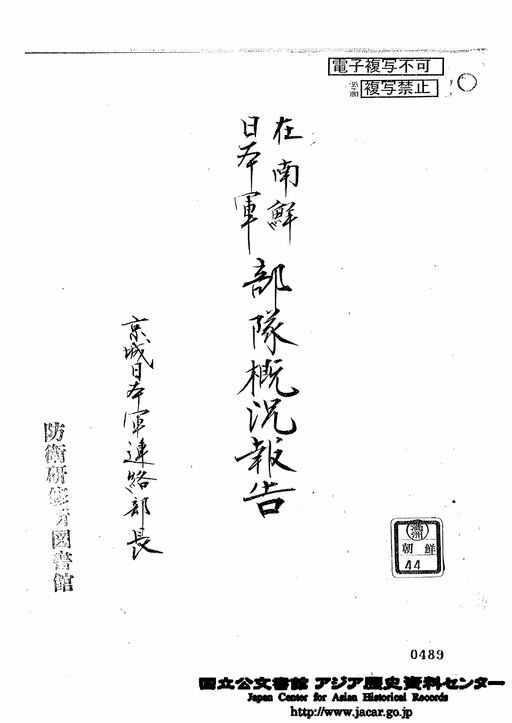 電子複写不可
複写禁止
在南鮮
日本軍
部隊概況報告
京城日本軍連絡部長
防衛研修所図書館
満洲
朝鮮
44
0489
国立公文書館 アジア歴史資料センター
Japan Center for Asian Historical Records
http://www.jacar.go.jp